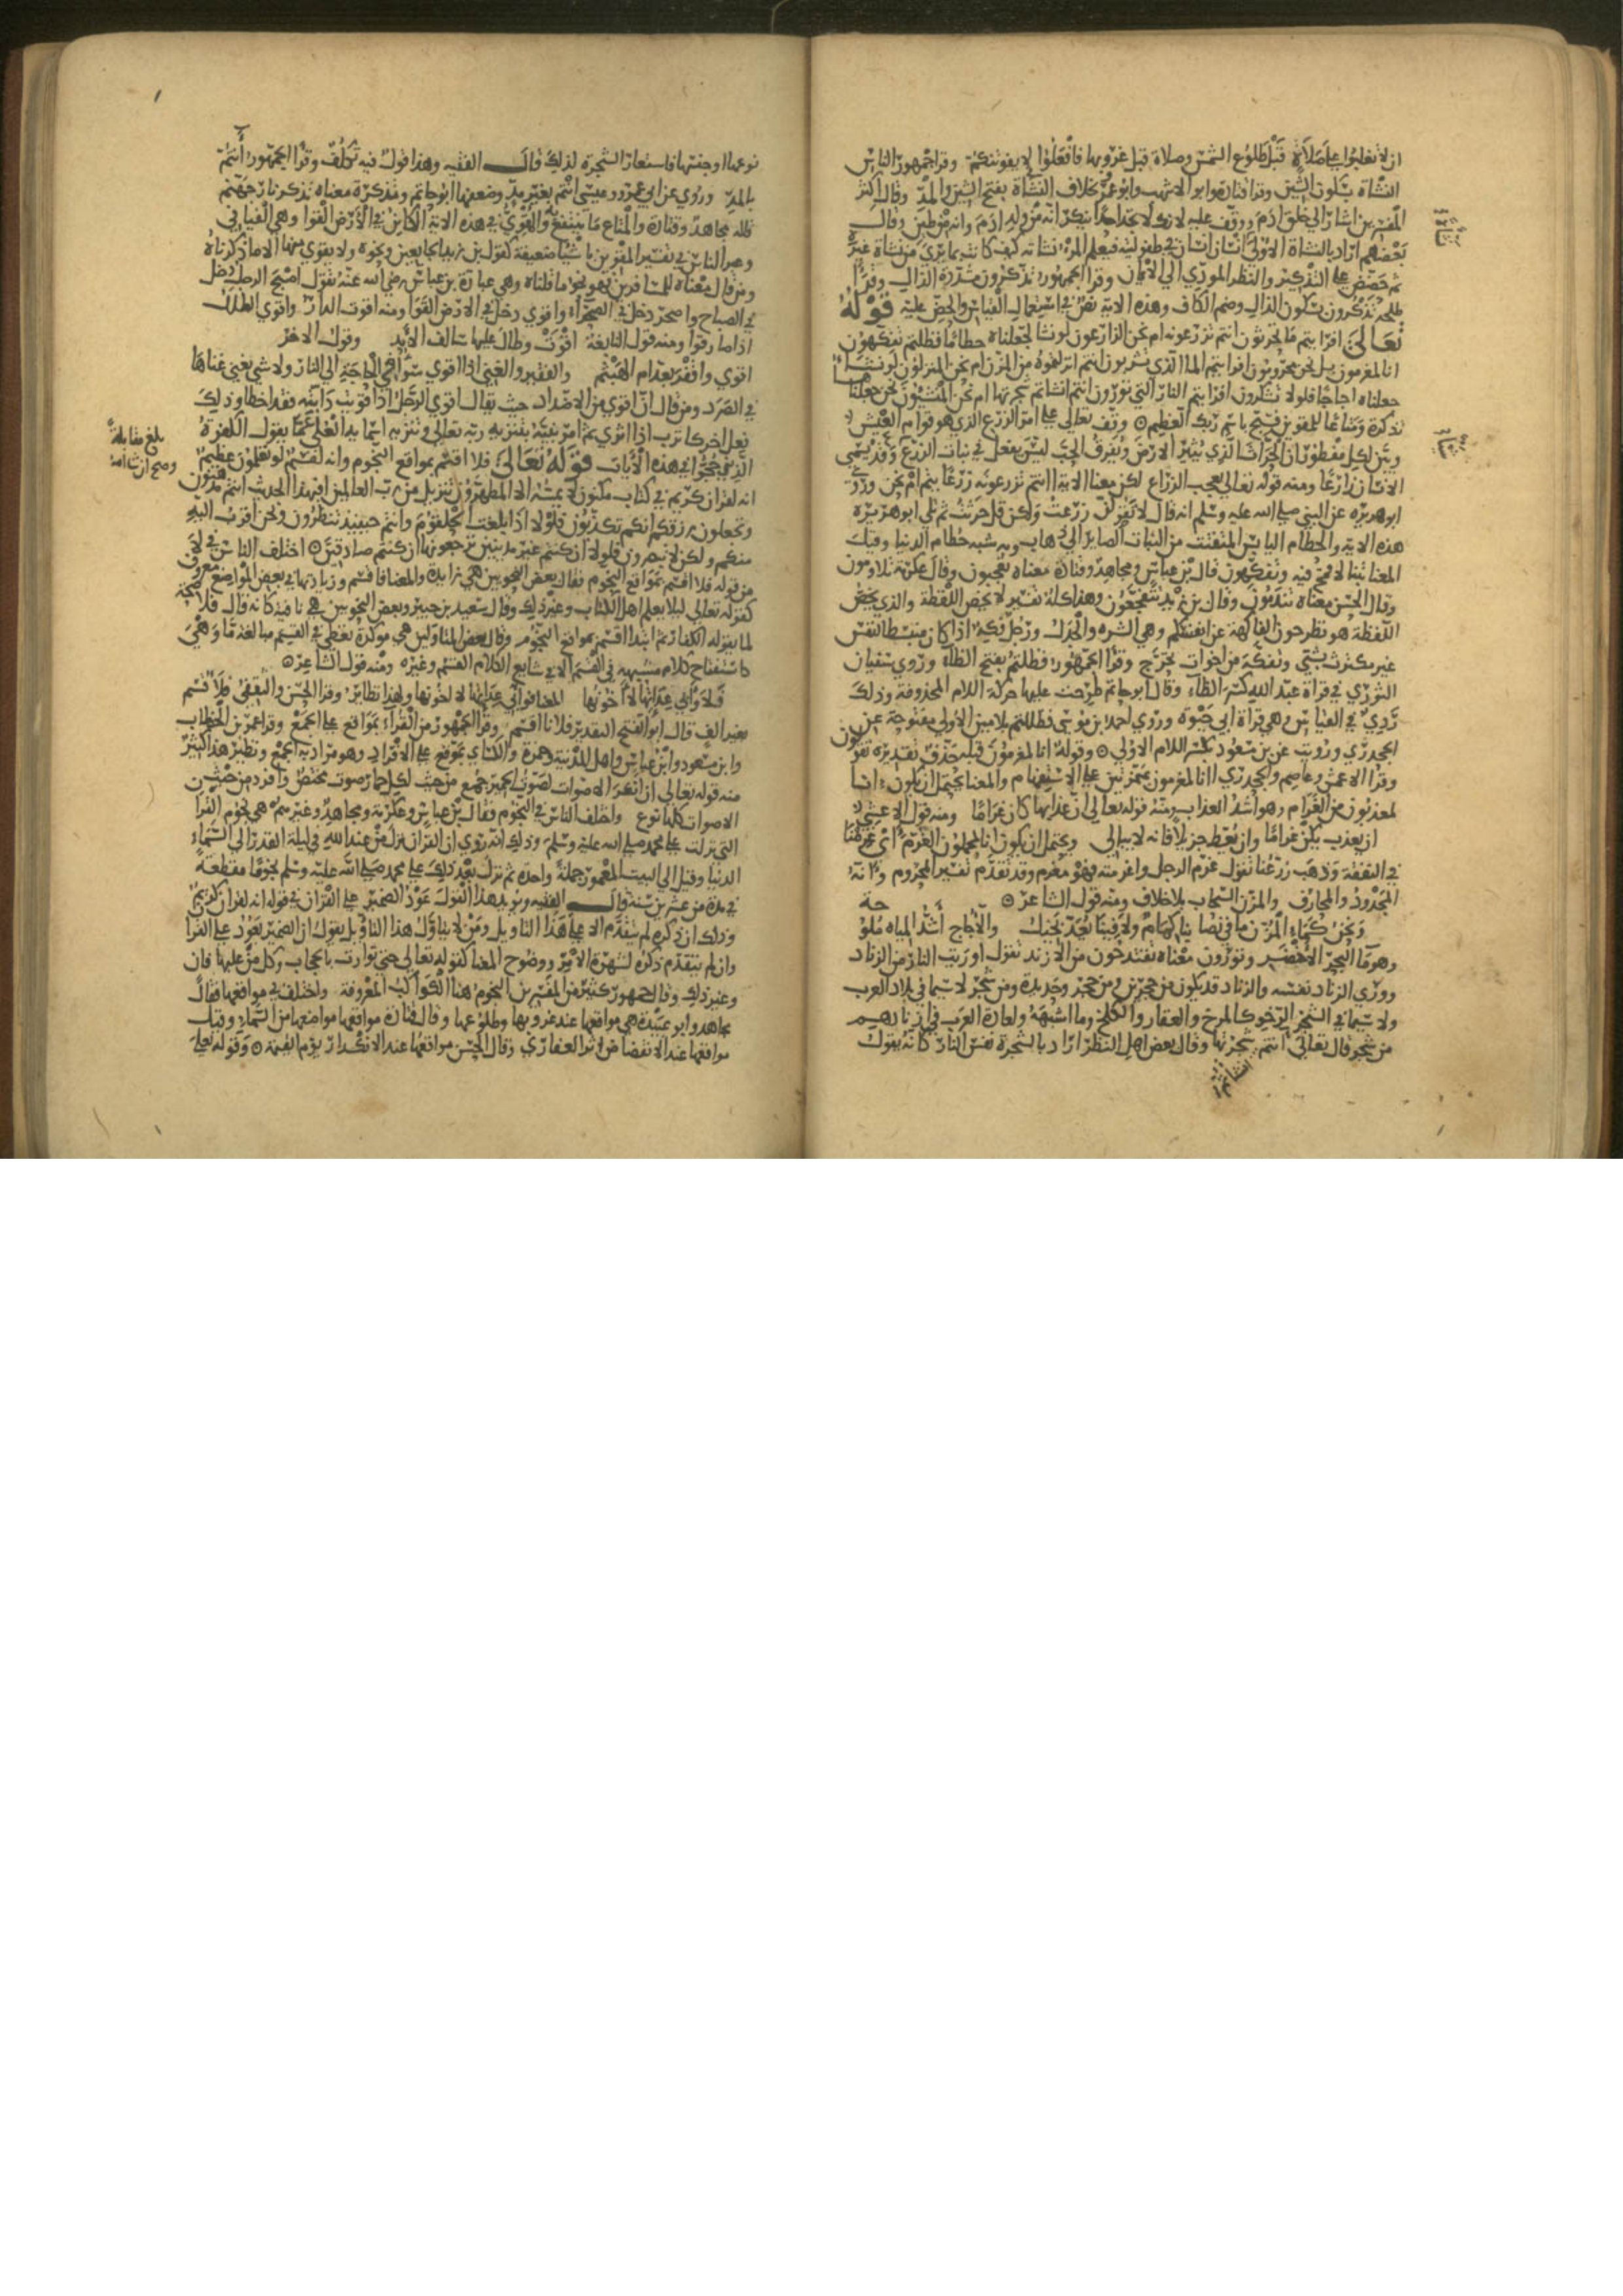 ان لا تغلبوا على صلاة قبل طلوع الشمس وصلاة قبل غروبها فافعلوا لا يفوتنكم وقرا جمهور الناس
النشاة بسكون الشين وقرا قتادة وابو الاشهب وابو عمرو بخلاف النشآة بفتح الشين والمد وقال اكثر
المفسرين اشار الى خلق ادم ووقف عليه لانه لا تجد احدا ينكر انه من ولد ادم وانه من طين وقال
بعضهم اراد بالنشاة الاولى انسان انسان في طفولته فيعلم المرء نشاته كيف كانت بما يرى من نشاة غيره
ثم حضض على التذكير والنظر المودي الى الايمان وقرا الجمهور تذكرون مشددة الذال وقرا
طلحة تذكرون بسكون الذال وضم الكاف وهذه الاية نص في استعمال القياس والحض عليه قوله
تعالى افرايتم ما تحرثون انتم تزرعونه ام نحن الزارعون لو نشا لجعلناه حطاما فظلتم تفكهون
انا لمغرمون بل نحن محرومون افرايتم الما الذي تشربون انتم انزلتموه من المزن ام نحن المنزلون لو نشاء
جعلناه اجاجا فلولا تشكرون افرايتم النار التي تورون انتم انشاتم شجرتها ام نحن المنشئون نحن جعلناها
تذكرة ومتاعا للمقوين فسبح باسم ربك العظيم ۞ وقف تعالى على امر الزرع الذي هو قوام العيش
وبين لكل مفطور ان الحراث الذي يثير الارض ويفرق الحب ليس يفعل في نبات الزرع وقد يسمى
الانسان زارعا ومنه قوله تعالى يعجب الزراع لكن معنا الاية اانتم تزرعونه زرعا يتم ام نحن وروى
ابو هريرة عن النبي صلى الله عليه وسلم انه قال لا تقولن زرعت ولكن قل حرثت ثم تلى ابو هريرة
هذه الاية والحطام اليابس المتفتت من النبات الصاير الى ذهاب وبه شبه حطام الدنيا وقيل
المعنا تبنا لا قمح فيه وتفكهون قال بن عباس ومجاهد وقتادة معناه تعجبون وقال عكرمة تلاومون
وقال الحسن معناه تندمون وقال بن زيد تتفجعون وهذا كله تفسير لا يخص اللفظة والذي يخص
اللفظة هو تطرحون الفاكهة عن انفسكم وهي الشره والجذل ورجل فكه اذا كان منبسط النفس
غير مكترث بشي وتفكه من اخوات تحرج وقرا الجمهور فظلتم بفتح الظاء وروى سفيان
الثوري في قراة عبد الله بكسر الظاء وقال ابو حاتم طرحت عليها حركة اللام المحذوفة وذلك
ردي في القياس وهي قراة ابي حيوة وروى احمد بن موسى فظللتم بلامين الاولى مفتوحة عن
الجحدري ورويت عن بن مسعود بكسر اللام الاولى ۞ وقوله انا لمغرمون قبله حذف تقديره تقولون
وقرا الاعمش وعاصم والجحدري اانا لمغرمون بهمزتين على الاستفهام والمعنا يحتمل ان يكون انا
لمعذبون من الغرام وهو اشد العذاب ومنه قوله تعالى ان عذابها كان غراما ومنه قول الاعشى
ان يعذب يكن غراما وان يعط جزيلا فانه لا يبالي ويحتمل ان يكون انا لمحملون الغرم اي غرمنا
في النفقة وذهب زرعنا تقول غرم الرجل واغرمته فهو مغرم وقد تقدم تفسير المحروم وانه
المجدود والمحارف والمزن السحاب بلا خلاف ومنه قول الشاعر ۞
ونحن كماء المزن ما في نصابنا كهام ولا فينا يعد بخيل والاجاج اشد المياه ملوحة
وهو ما البحر الاخضر وتورون معناه تقتدحون من الازند تقول اوريت النار من الزناد
وورى الزناد نفسه والزناد قد يكون من حجرين ومن حجر وحديدة ومن شجر لا سيما في بلاد العرب
ولا سيما في الشجر الرخو كالمرخ والعفار والكلخ وما اشبهه ولعادة العرب في ازنادهم
من شجر قال تعالى اانتم انشاتم شجرتها وقال بعض اهل النظر اراد بالشجرة نفس النار كانه يقول
نوعها او جنسها فاستعار الشجرة لذلك قال الفقيه وهذا قول فيه تكلف وقرا الجمهور أأنتم
بالمد وروي عن ابي عمرو وعيسى انتم بغير مد وضعفها ابو حاتم وتذكرة معناه تذكر نار جهنم
قاله مجاهد وقتادة والمتاع ما ينتفع به والمقوي في هذه الاية الكاين في الارض القوا وهي الفيافي
وعبر الناس في تفسير المقوين باشيا ضعيفة كقول بن زيد الجايعين ونحوه ولا يقوي منها الا ما ذكرناه
ومن قال معناه للمسافرين فهو نحو ما قلناه وهي عبارة بن عباس رضي الله عنه تقول اصبح الرجل دخل
في الصباح واصحر دخل في الصحراء واقوى دخل في الارض القوا ومنه اقوت الدار واقوى الطلل
ومنه قول النابغة اقوت وطال عليها سالف الابد وقول الاخر
اقوى واقفر بعد ام الهيثم والفقير والغني اذا اقوى سوا في الحاجة الى النار ولا شي يغني غناها
في الصرد ومن قال ان اقوى من الاضداد حيث يقال اقوى الرجل اذا قويت دابته فقد اخطا وذلك
فعل اخر كاترب اذا اثرى ثم امر نبيه بتنزيه ربه تعالى وتنزيه اسمايه العلي عما يقول الكفرة
الذين حجوا في هذه الايات قوله تعالى فلا اقسم بمواقع النجوم وانه لقسم لو تعلمون عظيم
انه لقران كريم في كتاب مكنون لا يمسه الا المطهرون تنزيل من رب العالمين افبهذا الحديث انتم مدهنون
وتجعلون رزقكم انكم تكذبون فلولا اذا بلغت الحلقوم وانتم حينيذ تنظرون ونحن اقرب اليه
منكم ولكن لا تبصرون فلولا ان كنتم غير مدينين ترجعونها ان كنتم صادقين ۞ اختلف الناس في لا
من قوله فلا اقسم بمواقع النجوم فقال بعض النحويين هي زايدة والمعنا فاقسم وزيادتها في بعض المواضع معروف
كقوله تعالى ليلا يعلم اهل الكتاب وغير ذلك وقال سعيد بن جبير وبعض النحويين هي نافية كانه قال فلا صحة
لما يقوله الكفار ثم ابتدا اقسم بمواقع النجوم وقال بعض المتاولين هي موكدة تعطي في القسم مبالغة ما وهي
كاستفتاح كلام مشبه في القسم الا في شايع الكلام القسم وغيره ومنه قول الشاعر ۞
فلا وابي اعدايها لا اخونها المعنا فوابي اعدايها لا اخونها ولهذا نظاير وقرا الحسن والثقفي فلاقسم
بغير الف قال ابو الفتح التقدير فلانا اقسم وقرا الجمهور من القراء بمواقع على الجمع وقرا عمر بن الخطاب
وابن مسعود وابن عباس واهل المدينة وحمزة والكساي بموقع على الافراد وهو مراد به الجمع ونظير هذا كثير
منه قوله تعالى ان انكر الاصوات لصوت الحمير جمع من حيث لكل حمار صوت مختص وافرد من حيث
الاصوات كلها نوع واختلف الناس في النجوم فقال بن عباس وعكرمة ومجاهد وغيرهم هي نجوم القران
التي نزلت على محمد صلى الله عليه وسلم وذلك انه روي ان القران نزل من عند الله في ليلة القدر الى السماء
الدنيا وقيل الى البيت المعمور جملة واحدة ثم نزل بعد ذلك على محمد صلى الله عليه وسلم نجوما مقطعة
في مدة من عشرين سنة قال الفقيه ويؤيد هذا القول عود الضمير على القران في قوله انه لقران كريم
وذلك ان ذكره لم يتقدم الا على هذا التاويل ومن لا يتاول هذا التاويل يقول ان الضمير يعود على القران
وان لم يتقدم ذكره لشهرة الامر ووضوح المعنا كقوله تعالى حتى توارت بالحجاب وكل من عليها فان
وغير ذلك وقال جمهور كثير من المفسرين النجوم هنا الكواكب المعروفة واختلف في مواقعها فقال
مجاهد وابو عبيدة هي مواقعها عند غروبها وطلوعها وقال قتادة مواقعها مواضعها من السماء وقيل
مواقعها عند الانقضاض اثر العفاريت وقال الحسن مواقعها عند الانكدار يوم القيمة ۞ وقوله تعالى
بلغ مقابلة
وصح ان شا الله